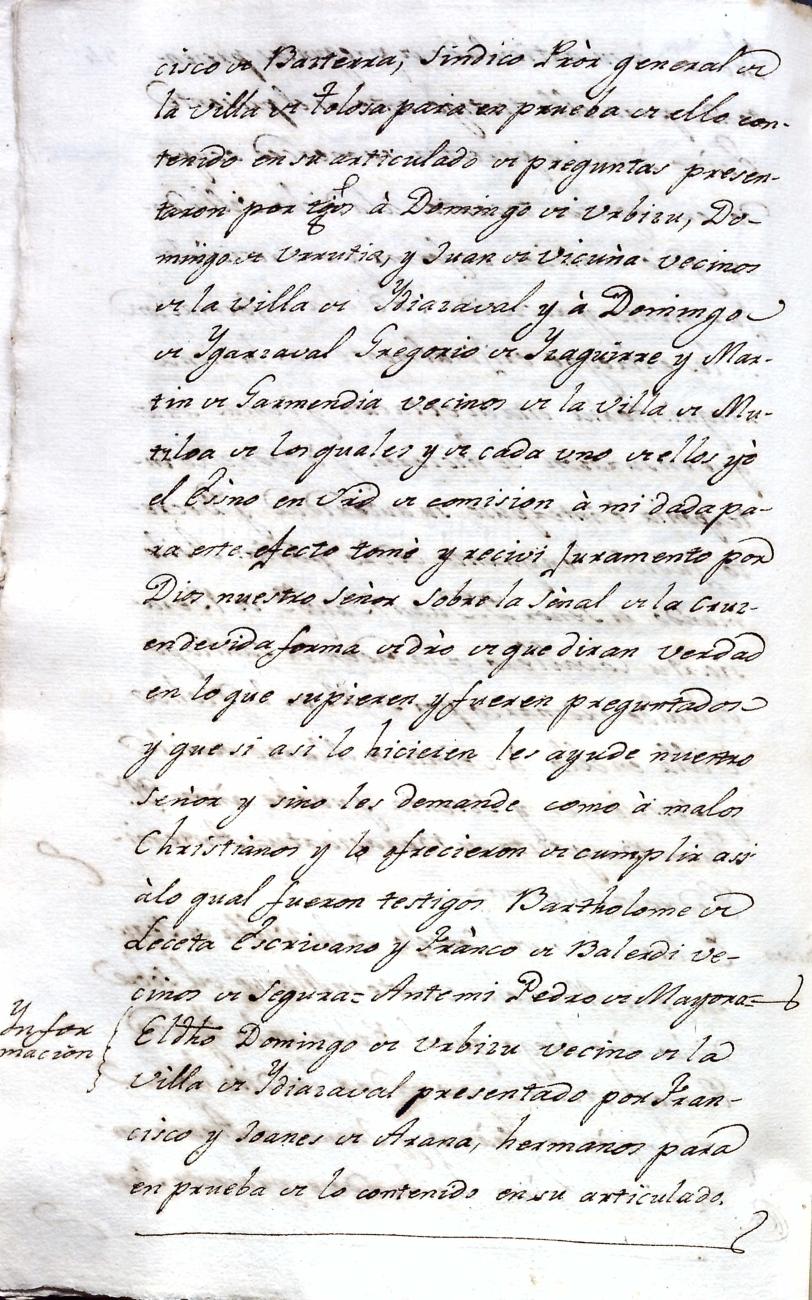 cisco de Basterra, Sindico Pròr general de
la villa de Tolosa para en prueba de ello con-
tenido en su articulado de preguntas presen-
taron por tgos à Domingo de Urbizu, Do-
mingo de Urrutia, y Juan de Vicuña vecinos
de la villa de Ydiazaval y à Domingo
de Ygarzaval Gregorio de Yzaguirre y Mar-
tin de Garmendia vecinos de la villa de Mu-
tiloa de los quales y de cada uno de ellos yò
el Essno en Vrd de comision à mi dada pa-
ra este efecto tomè y recivi Juramento por
Dios nuestro señor sobre la señal de la Cruz
en devida forma de dro de que diran verdad
en lo que supieren y fueren preguntados
y que si asi lo hicieren les ayude nuestro
señor y sino les demande como à malos
Christianos y lo ofrecieron de cumplir assi
à lo qual fueron testigos Bartholome de
Leceta Escrivano y Frànco de Balerdi ve-
cinos de Segura= Ante mi Pedro de Mayora=
Ynfor
macion
El dho Domingo de Urbizu vecino de la
Villa de Ydiazaval presentado por Fran-
cisco y Joanes de Arana, hermanos para
en prueba de lo contenido en su articulado.